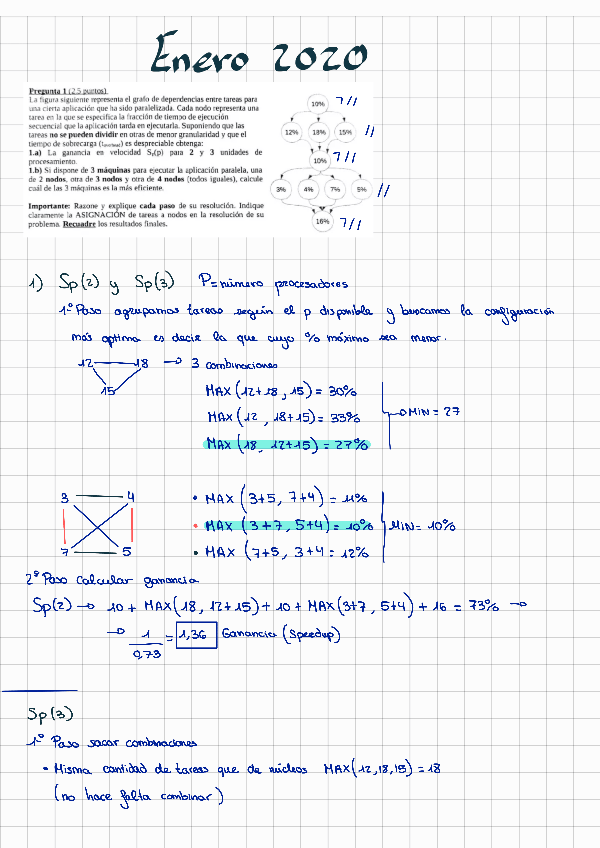 Enero 2020
Pregunta 1 (2.5 puntos)
La figura siguiente representa el grafo de dependencias entre tareas para
una cierta aplicación que ha sido paralelizada. Cada nodo representa una
tarea en la que se especifica la fracción de tiempo de ejecución
secuencial que la aplicación tarda en ejecutarla. Suponiendo que las
tareas no se pueden dividir en otras de menor granularidad y que el
tiempo de sobrecarga (toverhead) es despreciable obtenga:
1.a) La ganancia en velocidad Sp(p) para 2 y 3 unidades de
procesamiento.
1.b) Si dispone de 3 máquinas para ejecutar la aplicación paralela, una
de 2 nodos, otra de 3 nodos y otra de 4 nodos (todos iguales), calcule
cuál de las 3 máquinas es la más eficiente.
Importante: Razone y explique cada paso de su resolución. Indique
claramente la ASIGNACIÓN de tareas a nodos en la resolución de su
problema. Recuadre los resultados finales.
10% 7//
12% 18% 15% //
10% 7//
3% 4% 7% 5% //
16% 7//
1) Sp(2) y Sp(3) P=número procesadores
1º Paso agrupamos tareas según el p disponible y buscamos la configuración
más optima es decir la que cuyo % máximo sea menor.
12 18 → 3 combinaciones
15
MAX(12+18, 15) = 30%
MAX(12, 18+15) = 33%
MAX(18, 12+15) = 27%
→ MIN = 27
3 4
7 5
• MAX(3+5, 7+4) = 11%
• MAX(3+7, 5+4) = 10%
• MAX(7+5, 3+4 = 12%
MIN = 10%
2º Paso calcular ganancia
Sp(2) → 10 + MAX(18, 12+15) + 10 + MAX(3+7, 5+4) + 16 = 73% →
→ 1/0,73 = 1,36 Ganancia (Speedup)
Sp(3)
1º Paso sacar combinaciones
• Misma cantidad de tareas que de núcleos MAX(12,18,15) = 18
(no hace falta combinar)